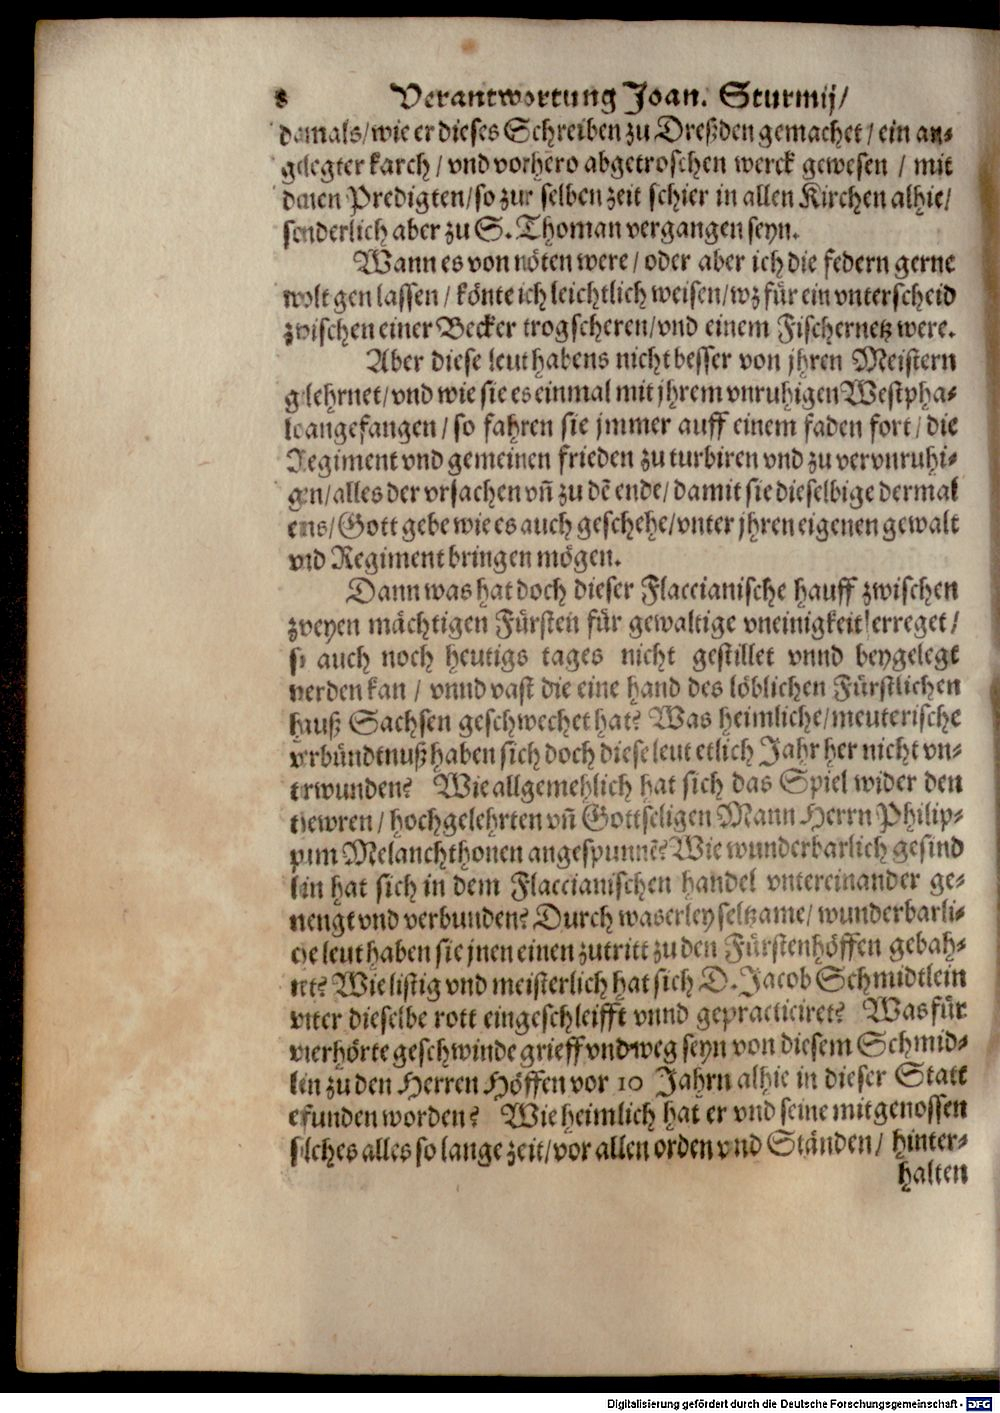 8 Verantwortung Joan. Sturmij/
damals/ wie er dieses Schreiben zu Dreßden gemachet/ ein an-
gelegter karch/ vnd vorhero abgetroschen werck gewesen / mit
denen Predigten/ so zur selben zeit schier in allen Kirchen alhie/
sonderlich aber zu S. Thoman vergangen seyn.
Wann es von nöten were/ oder aber ich die federn gerne
wolt gen lassen/ könte ich leichtlich weisen/ wz für ein vnterscheid
zwischen einer Becker trogscheren/ vnd einem Fischernetz were.
Aber diese leut habens nicht besser von jhren Meistern
gelehrnet/ vnd wie sie es einmal mit jhrem vnruhigen Westpha-
lo angefangen/ so fahren sie jmmer auff einem faden fort/ die
Regiment vnd gemeinen frieden zu turbiren vnd zu vervnruhi-
gen/ alles der vrsachen vñ zu dē ende/ damit sie dieselbige dermal
eins/ Gott gebe wie es auch geschehe/ vnter jhren eigenen gewalt
vnd Regiment bringen mögen.
Dann was hat doch dieser Flaccianische hauff zwischen
zweyen mächtigen Fürsten für gewaltige vneinigkeit erreget/
so auch noch heutigs tages nicht gestillet vnnd beygelegt
werden kan / vnnd vast die eine hand des löblichen Fürstlichen
hauß Sachsen geschwechet hat? Was heimliche/ meuterische
verbündtnuß haben sich doch diese leut etlich Jahr her nicht vn-
terwunden? Wie allgemehlich hat sich das Spiel wider den
thewren/ hochgelehrten vñ Gottseligen Mann Herrn Philip-
pum Melanchthonen angespunnē? Wie wunderbarlich gesind
lin hat sich in dem Flaccianischen handel vntereinander ge-
mengt vnd verbunden? Durch waserley seltzame/ wunderbarli-
che leut haben sie jnen einen zutritt zu den Fürstenhöffen gebah-
net? Wie listig vnd meisterlich hat sich D. Jacob Schmidtlein
vnter dieselbe rott eingeschleifft vnnd gepracticiret? Was für
vnerhörte geschwinde grieff vnd weg seyn von diesem Schmid-
lin zu den Herren Höffen vor 10 Jahrn alhie in dieser Statt
efunden worden? Wie heimlich hat er vnd seine mitgenossen
solches alles so lange zeit/ vor allen orden vnd Ständen/ hinter-
halten
Digitalisierung gefördert durch die Deutsche Forschungsgemeinschaft - DFG